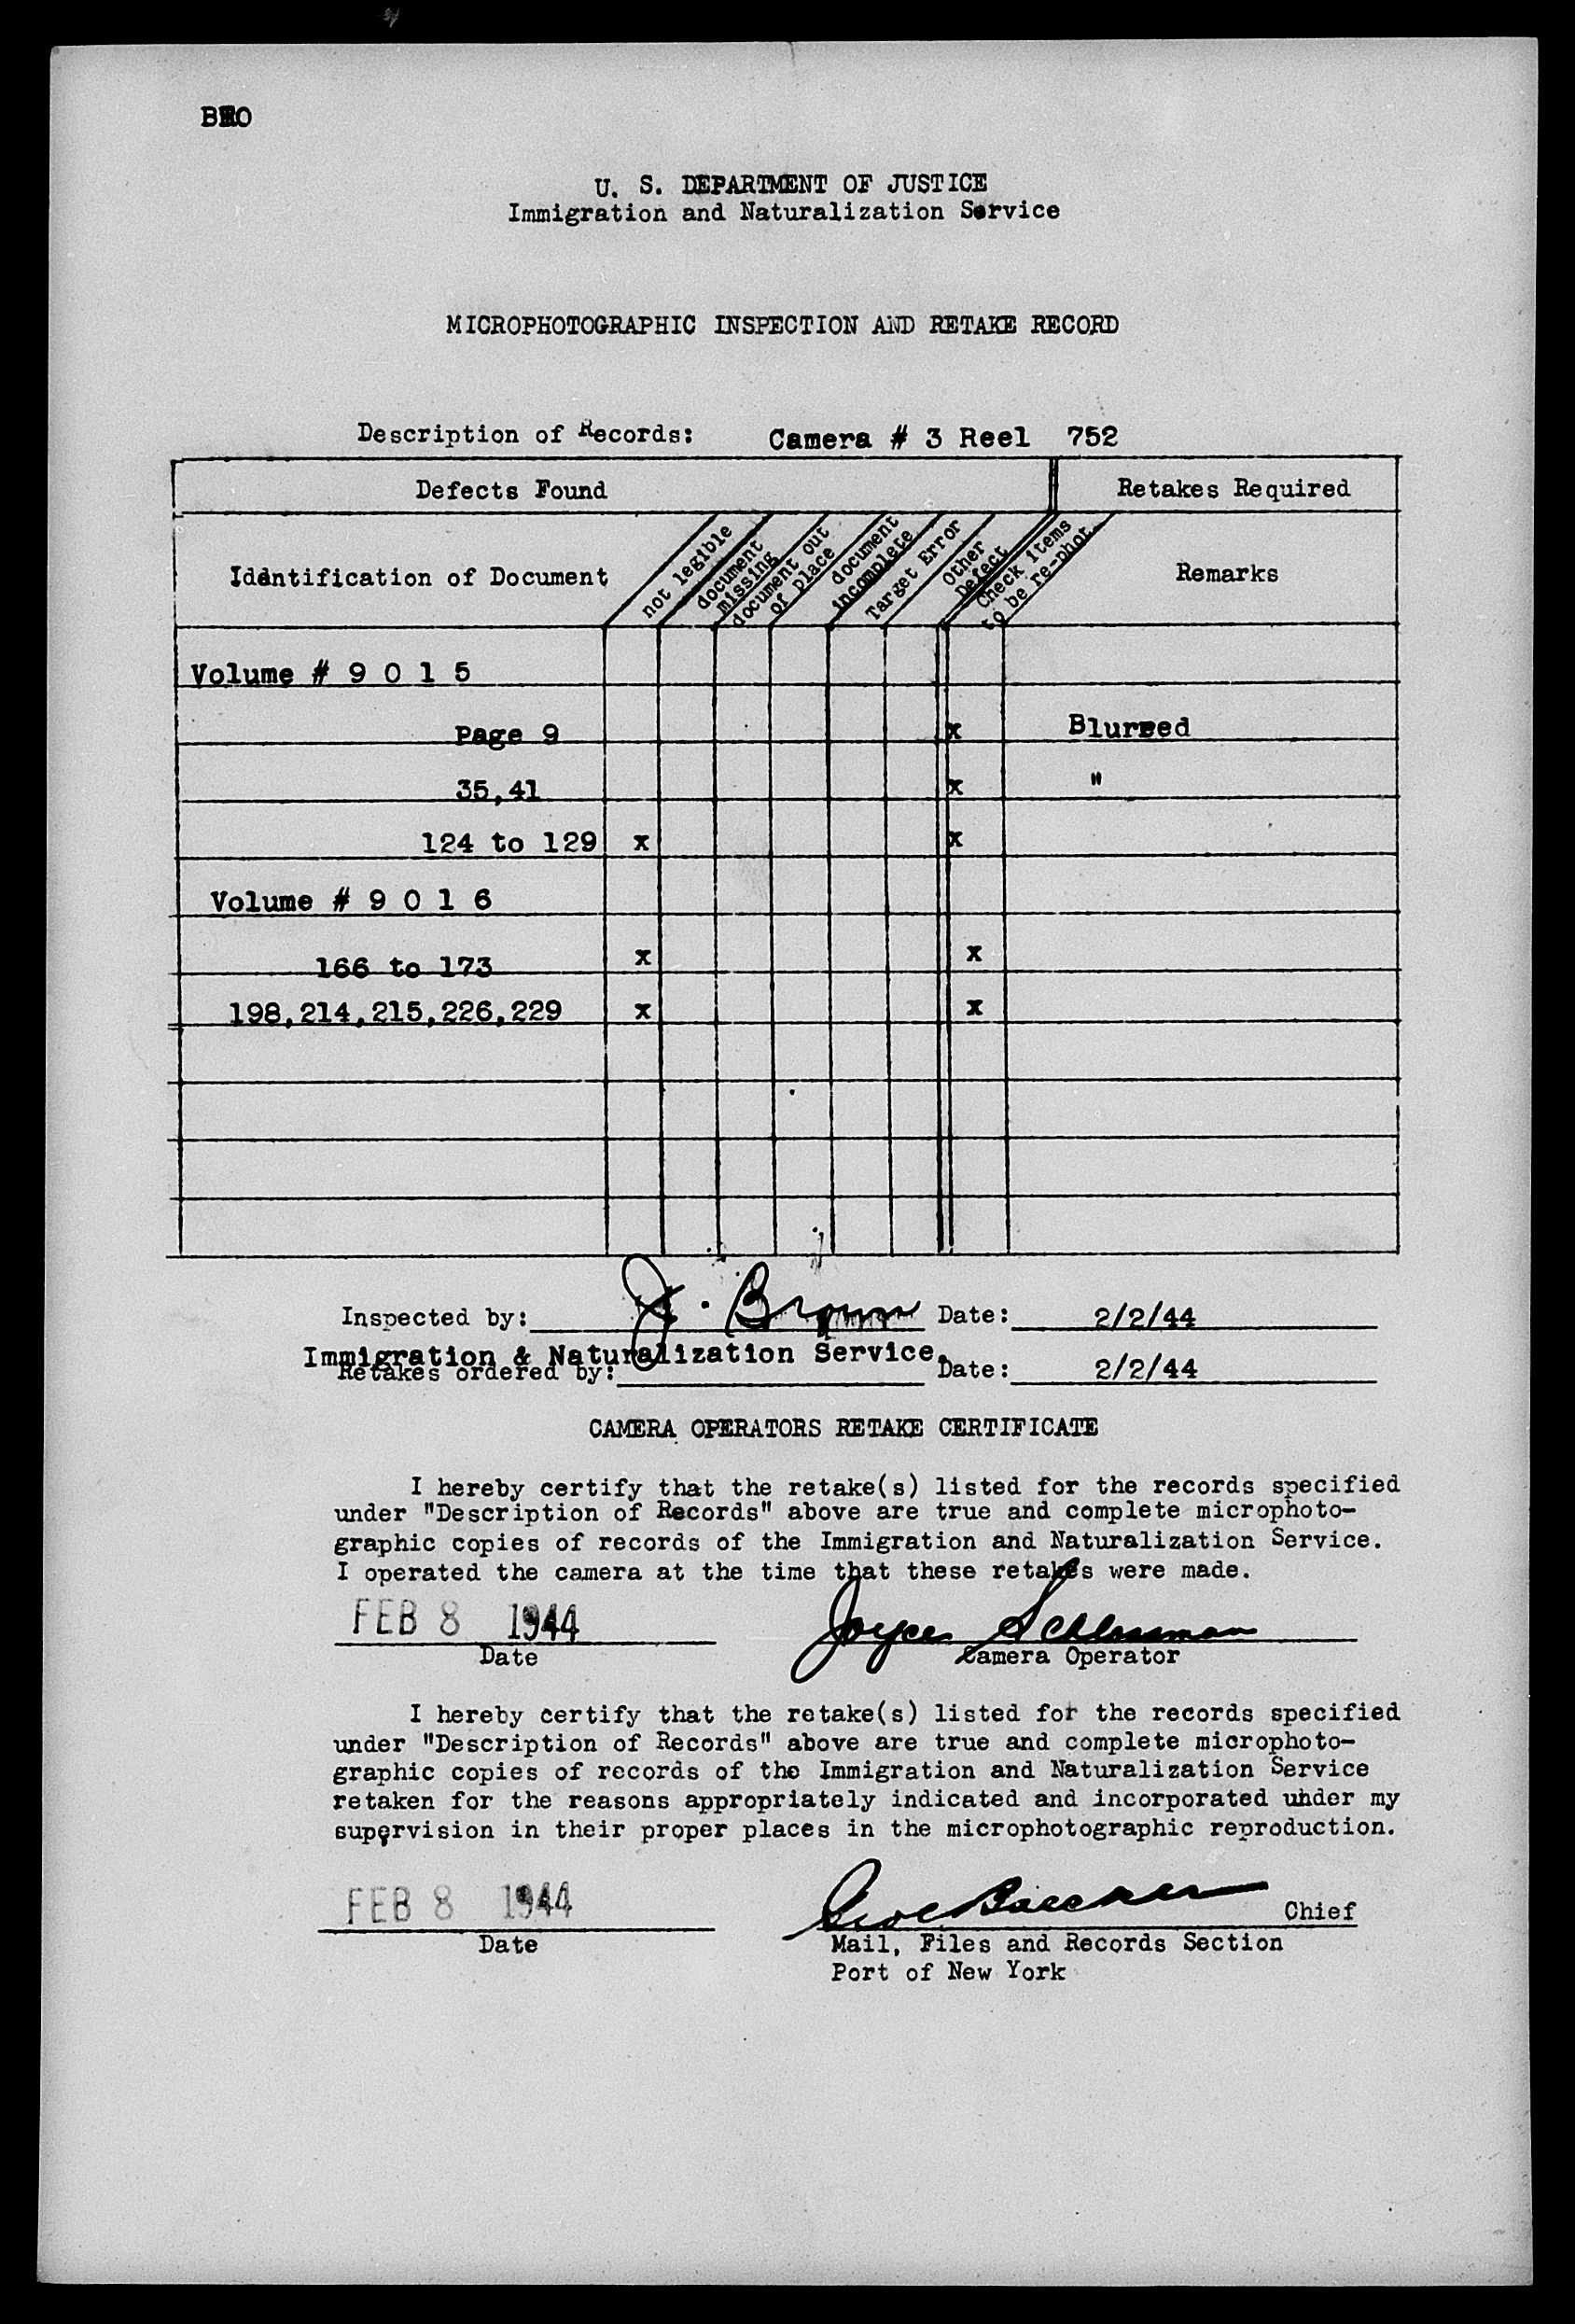 U. S. DEPARTMENT OF JUSTICE
Immigration and Naturalization Service
MICROPHOTOGRAPHIC INSPECTION AND RETAKE RECORD
Description of Records: Camera # 3 Reel 752
Defects Found Retakes Required
Identification of Document not legible document missing document out of place document incomplete Target Error Other Defect Check items to be re-phot. Remarks
Volume # 9 0 1 5
Page 9 x Blurred
35,41 x "
124 to 129 x x
Volume # 9 0 1 6
166 to 173 x x
198,214,215,226,229 x x
Inspected by: J. Brown Date: 2/2/44
Immigration & Naturalization Service.
Retakes ordered by: Date: 2/2/44
CAMERA OPERATORS RETAKE CERTIFICATE
I hereby certify that the retake(s) listed for the records specified
under "Description of Records" above are true and complete microphoto-
graphic copies of records of the Immigration and Naturalization Service.
I operated the camera at the time that these retakes were made.
FEB 8 1944 Joyce Schlossman
Date Camera Operator
I hereby certify that the retake(s) listed for the records specified
under "Description of Records" above are true and complete microphoto-
graphic copies of records of the Immigration and Naturalization Service
retaken for the reasons appropriately indicated and incorporated under my
supervision in their proper places in the microphotographic reproduction.
FEB 8 1944 Chief
Date Mail, Files and Records Section
Port of New York